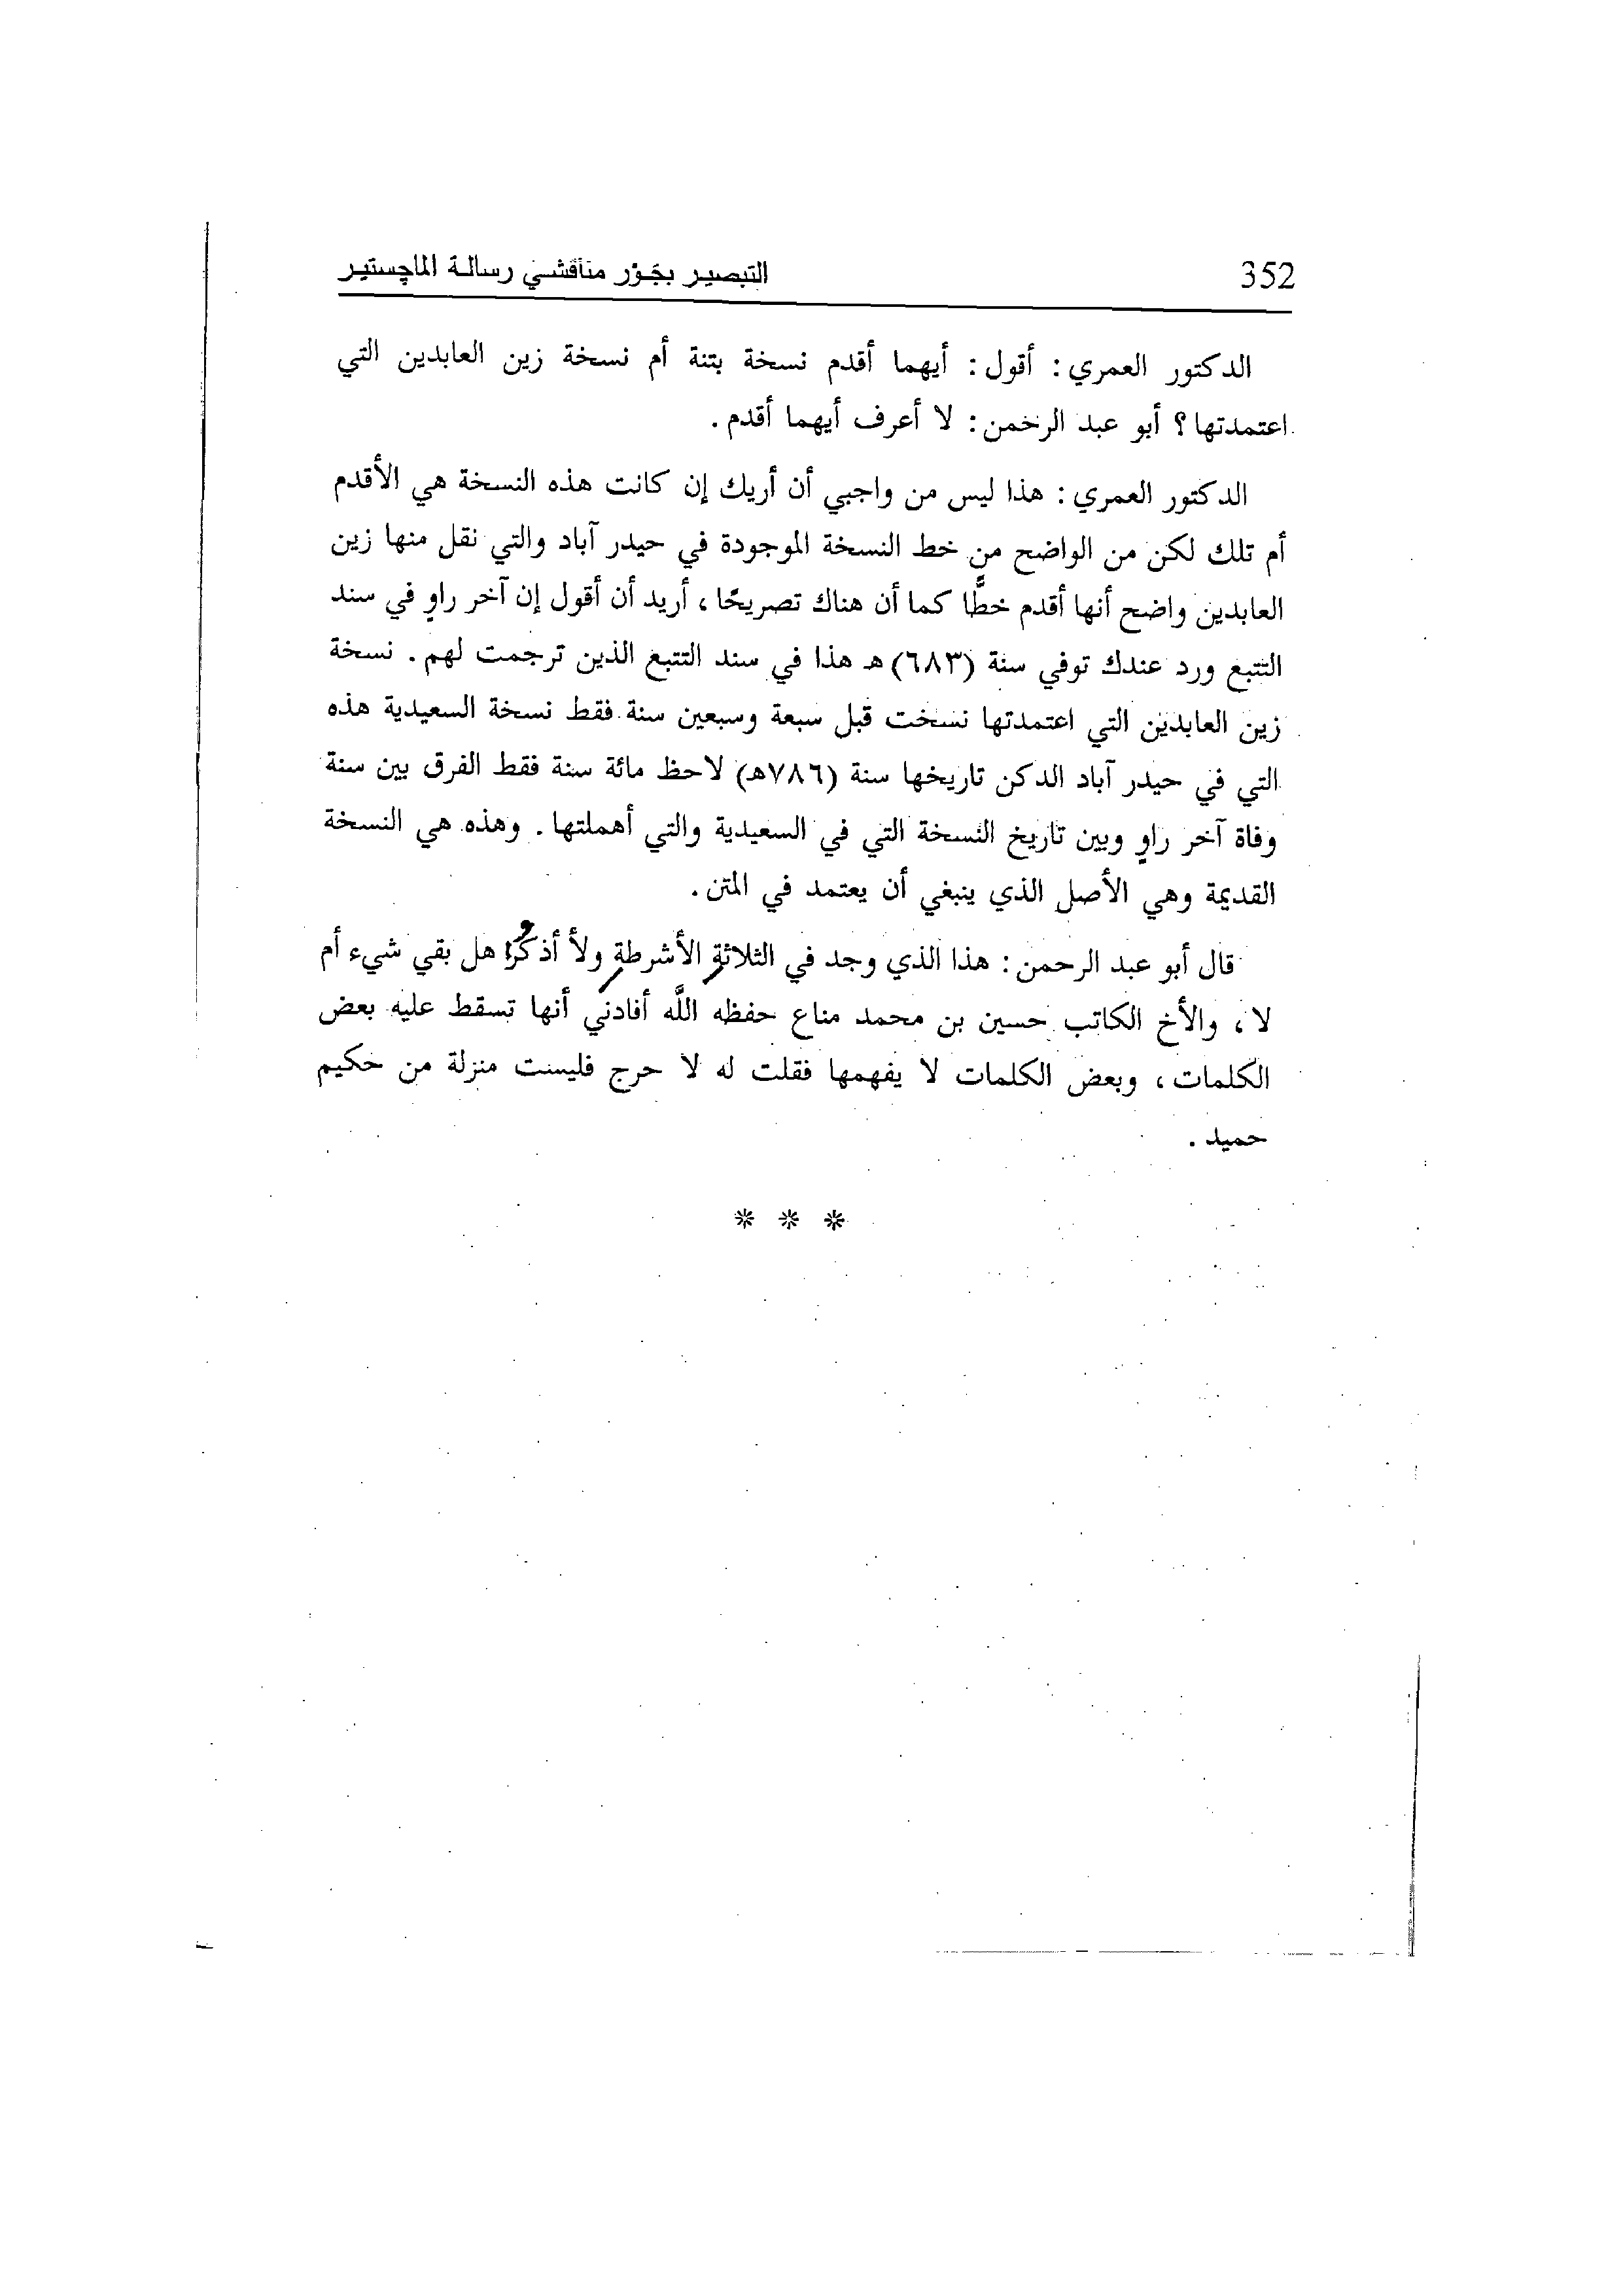 352 التبصير بجَوْر مناقشي رسالة الماچستير
الدكتور العمري: أقول: أيهما أقدم نسخة بتنة أم نسخة زين العابدين التي
اعتمدتها؟ أبو عبد الرحمن: لا أعرف أيهما أقدم.
الدكتور العمري: هذا ليس من واجبي أن أريك إن كانت هذه النسخة هي الأقدم
أم تلك لكن من الواضح من خط النسخة الموجودة في حيدر آباد والتي نقل منها زين
العابدين واضح أنها أقدم خطًّا كما أن هناك تصريحًا، أريد أن أقول إن آخر راوٍ في سند
التتبع ورد عندك توفي سنة (٦٨٣) هـ هذا في سند التتبع الذين ترجمت لهم. نسخة
زين العابدين التي اعتمدتها نسخت قبل سبعة وسبعين سنة فقط نسخة السعيدية هذه
التي في حيدر آباد الدكن تاريخها سنة (٧٨٦هـ) لاحظ مائة سنة فقط الفرق بين سنة
وفاة آخر راوٍ وبين تاريخ النسخة التي في السعيدية والتي أهملتها. وهذه هي النسخة
القديمة وهي الأصل الذي ينبغي أن يعتمد في المتن.
قال أبو عبد الرحمن: هذا الذي وجد في الثلاثةِ الأشرطةِ ولا أذكُر هل بقي شيء أم
لا، والأخ الكاتب حسين بن محمد مناع حفظه اللَّه أفادني أنها تسقط عليه بعض
الكلمات، وبعض الكلمات لا يفهمها فقلت له لا حرج فليست منزلة من حكيم
حميد.
* * *